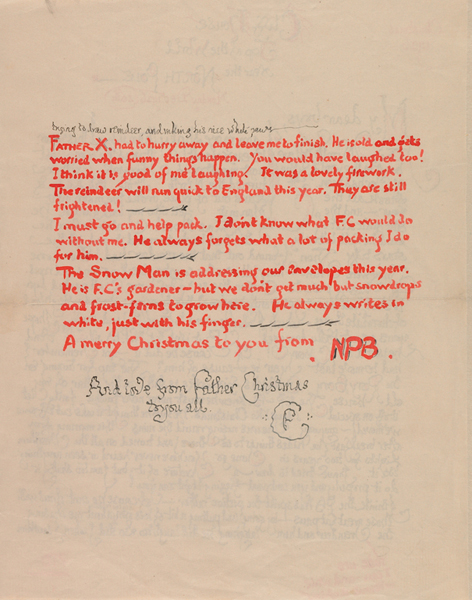 trying to draw reindeer, and inking his nice white paws
FATHER X. had to hurry away and leave me to finish. He is old and gets
worried when funny things happen. You would have laughed too!
I think it is good of me laughing. It was a lovely firework.
The reindeer will run quick to England this year. They are still
frightened!
I must go and help pack. I don't know what F.C would do
without me. He always forgets what a lot of packing I do
for him.
The Snow Man is addressing our Envelopes this year.
He is F.C's gardener – but we don't get much but snowdrops
and frost-ferns to grow here. He always writes in
white, just with his finger.
A merry Christmas to you from NPB.
And love from Father Christmas
to you all.
F